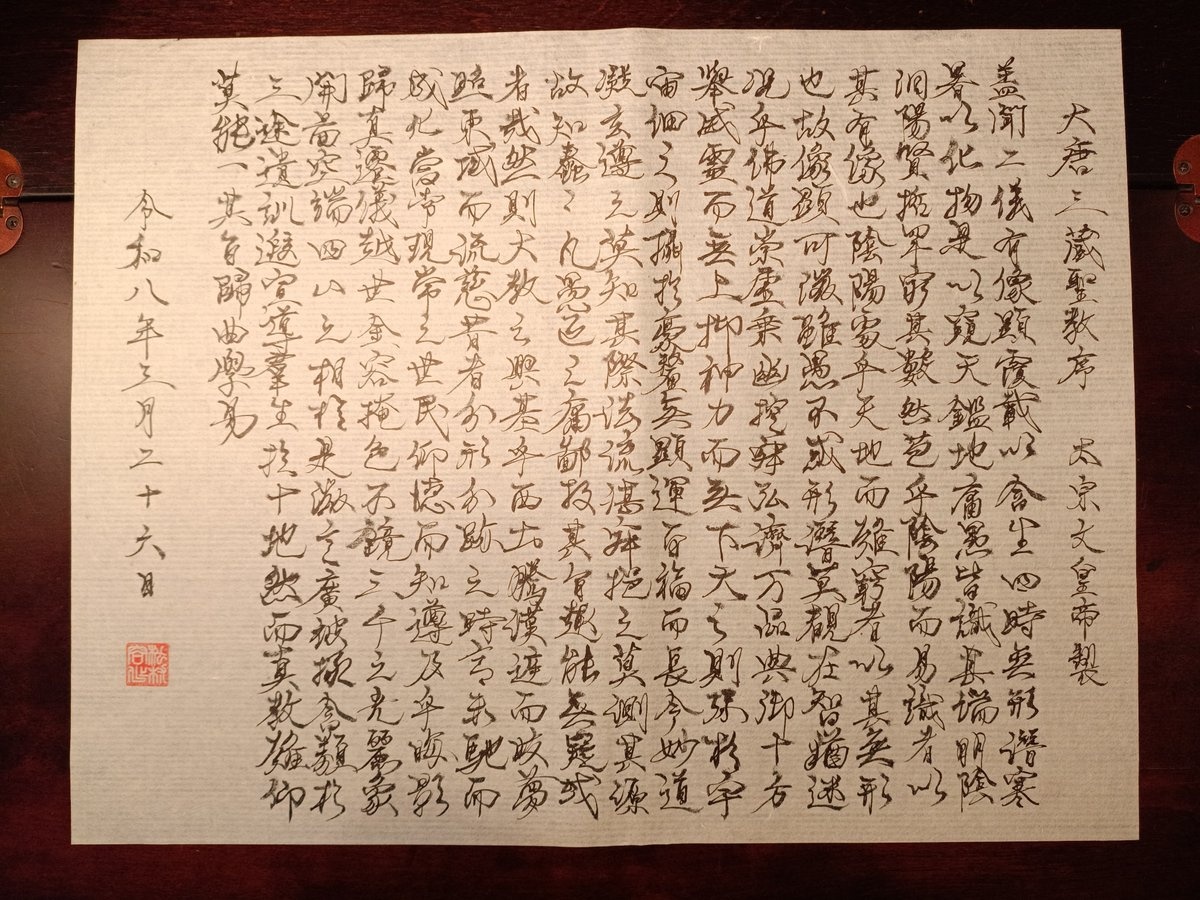 大唐三蔵聖教序　太宗文皇帝製
盖聞二儀有像顕覆載以含生四時無形潜寒
暑以化物是以窺天鑑地庸愚皆識其端明陰
洞陽賢哲罕窮其數然苞乎陰陽而易識者以
其有像也陰陽處乎天地而難窮者以其無形
也故像顕可徴雖愚不惑形潜莫覩在智猶迷
况乎佛道崇虚乗幽控寂弘濟万品典御十方
舉威靈而無上抑神力而無下大之則弥於宇
宙細之則攝於豪釐無顕運百福而長今妙道
凝玄遵之莫知其際法流湛寂挹之莫測其源
故知蠢々凡愚區々庸鄙投其旨趣能無疑惑
者哉然則大教之興基乎西土騰漢庭而皎夢
照東域而流慈昔者分形分跡之時言未馳而
成化當常現常之世民仰德而知遵及乎晦影
歸真遷儀越世金容掩色不鏡三千之光麗象
開圖空端四八之相於是微言廣被拯含類於
三途遺訓遐宣導羣生於十地然而真教難仰
莫能一其旨歸曲學易
令和八年三月二十六日